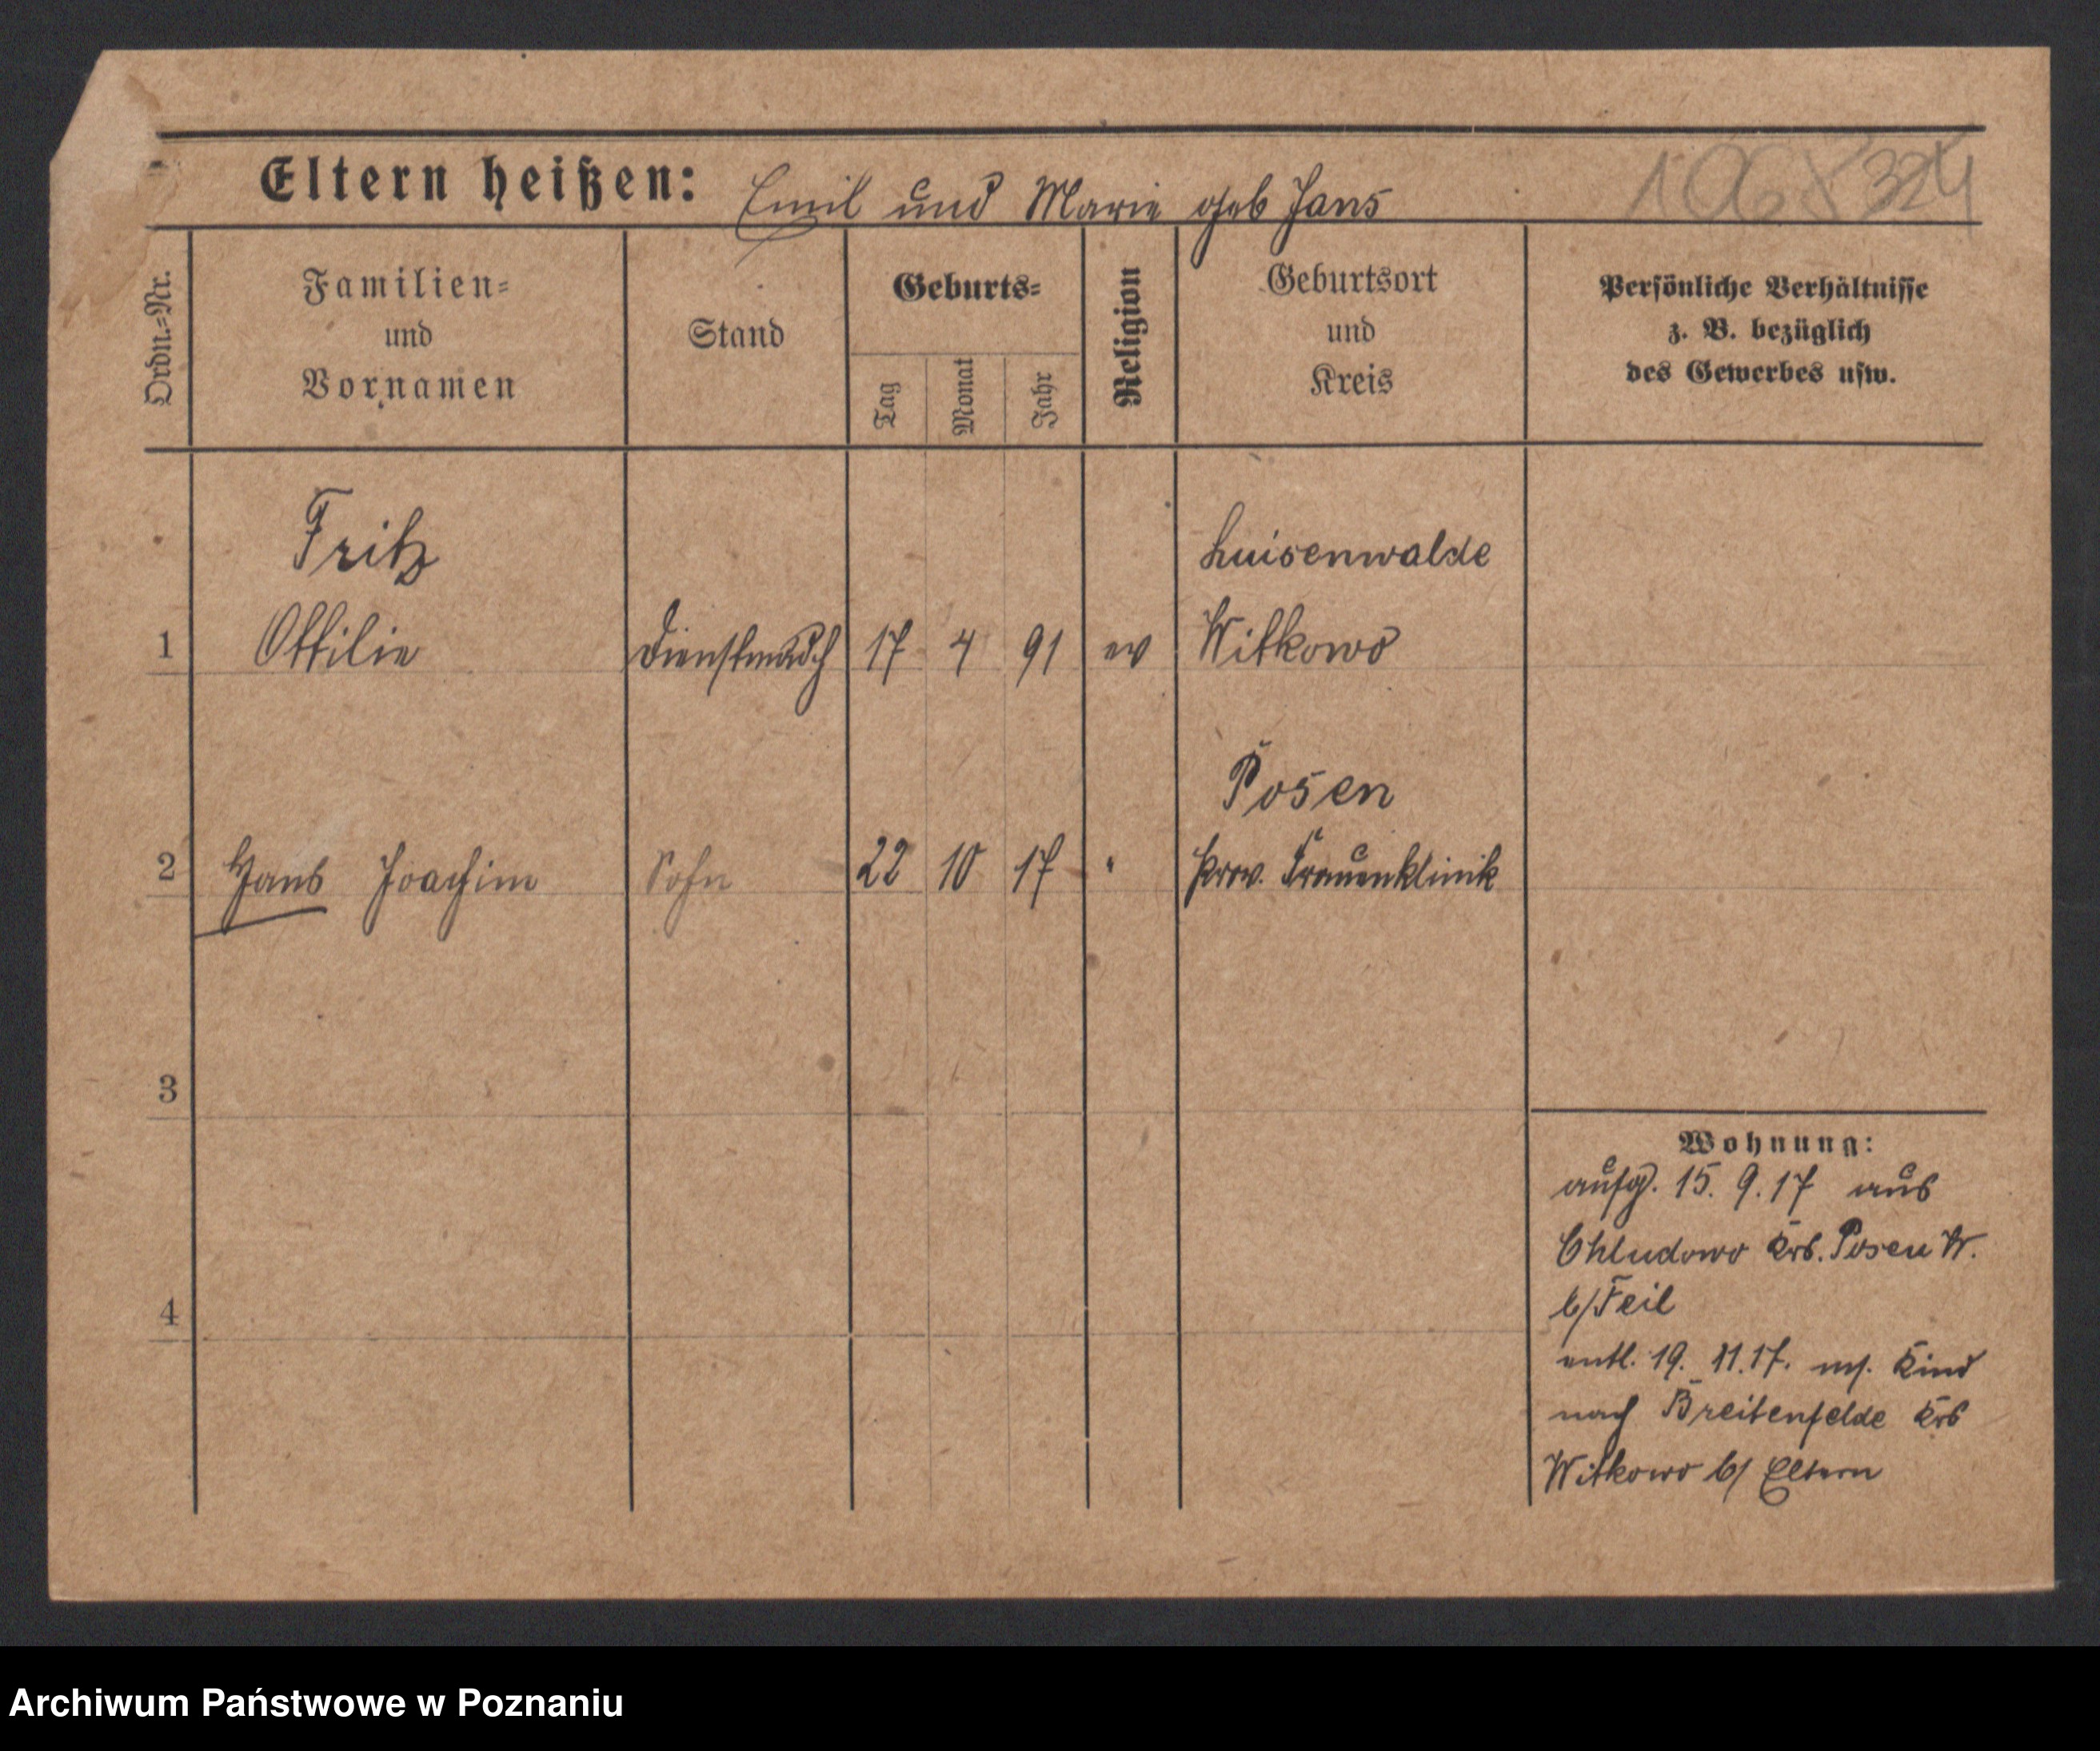 Eltern heißen: Emil und Marie geb Jans
Ordn.=Nr.
Familien=
und
Vornamen
Stand
Geburts=
Tag
Monat
Jahr
Religion
Geburtsort
und
Kreis
Persönliche Verhältnisse
z. B. bezüglich
des Gewerbes usw.
Fritz
Luisenwalde
1 Ottilie Dienstmdch 17 4 91 ev Witkowo
Posen
2 Hans Joachim Sohn 22 10 17 " Prov. Frauenklinik
3
4
Wohnung:
aufg. 15. 9. 17 aus
Chludowo Krs. Posen W.
b/Feil
entl. 19. 11. 17. m/. Kind
nach Breitenfelde Krs
Witkowo b/ Eltern
Archiwum Państwowe w Poznaniu